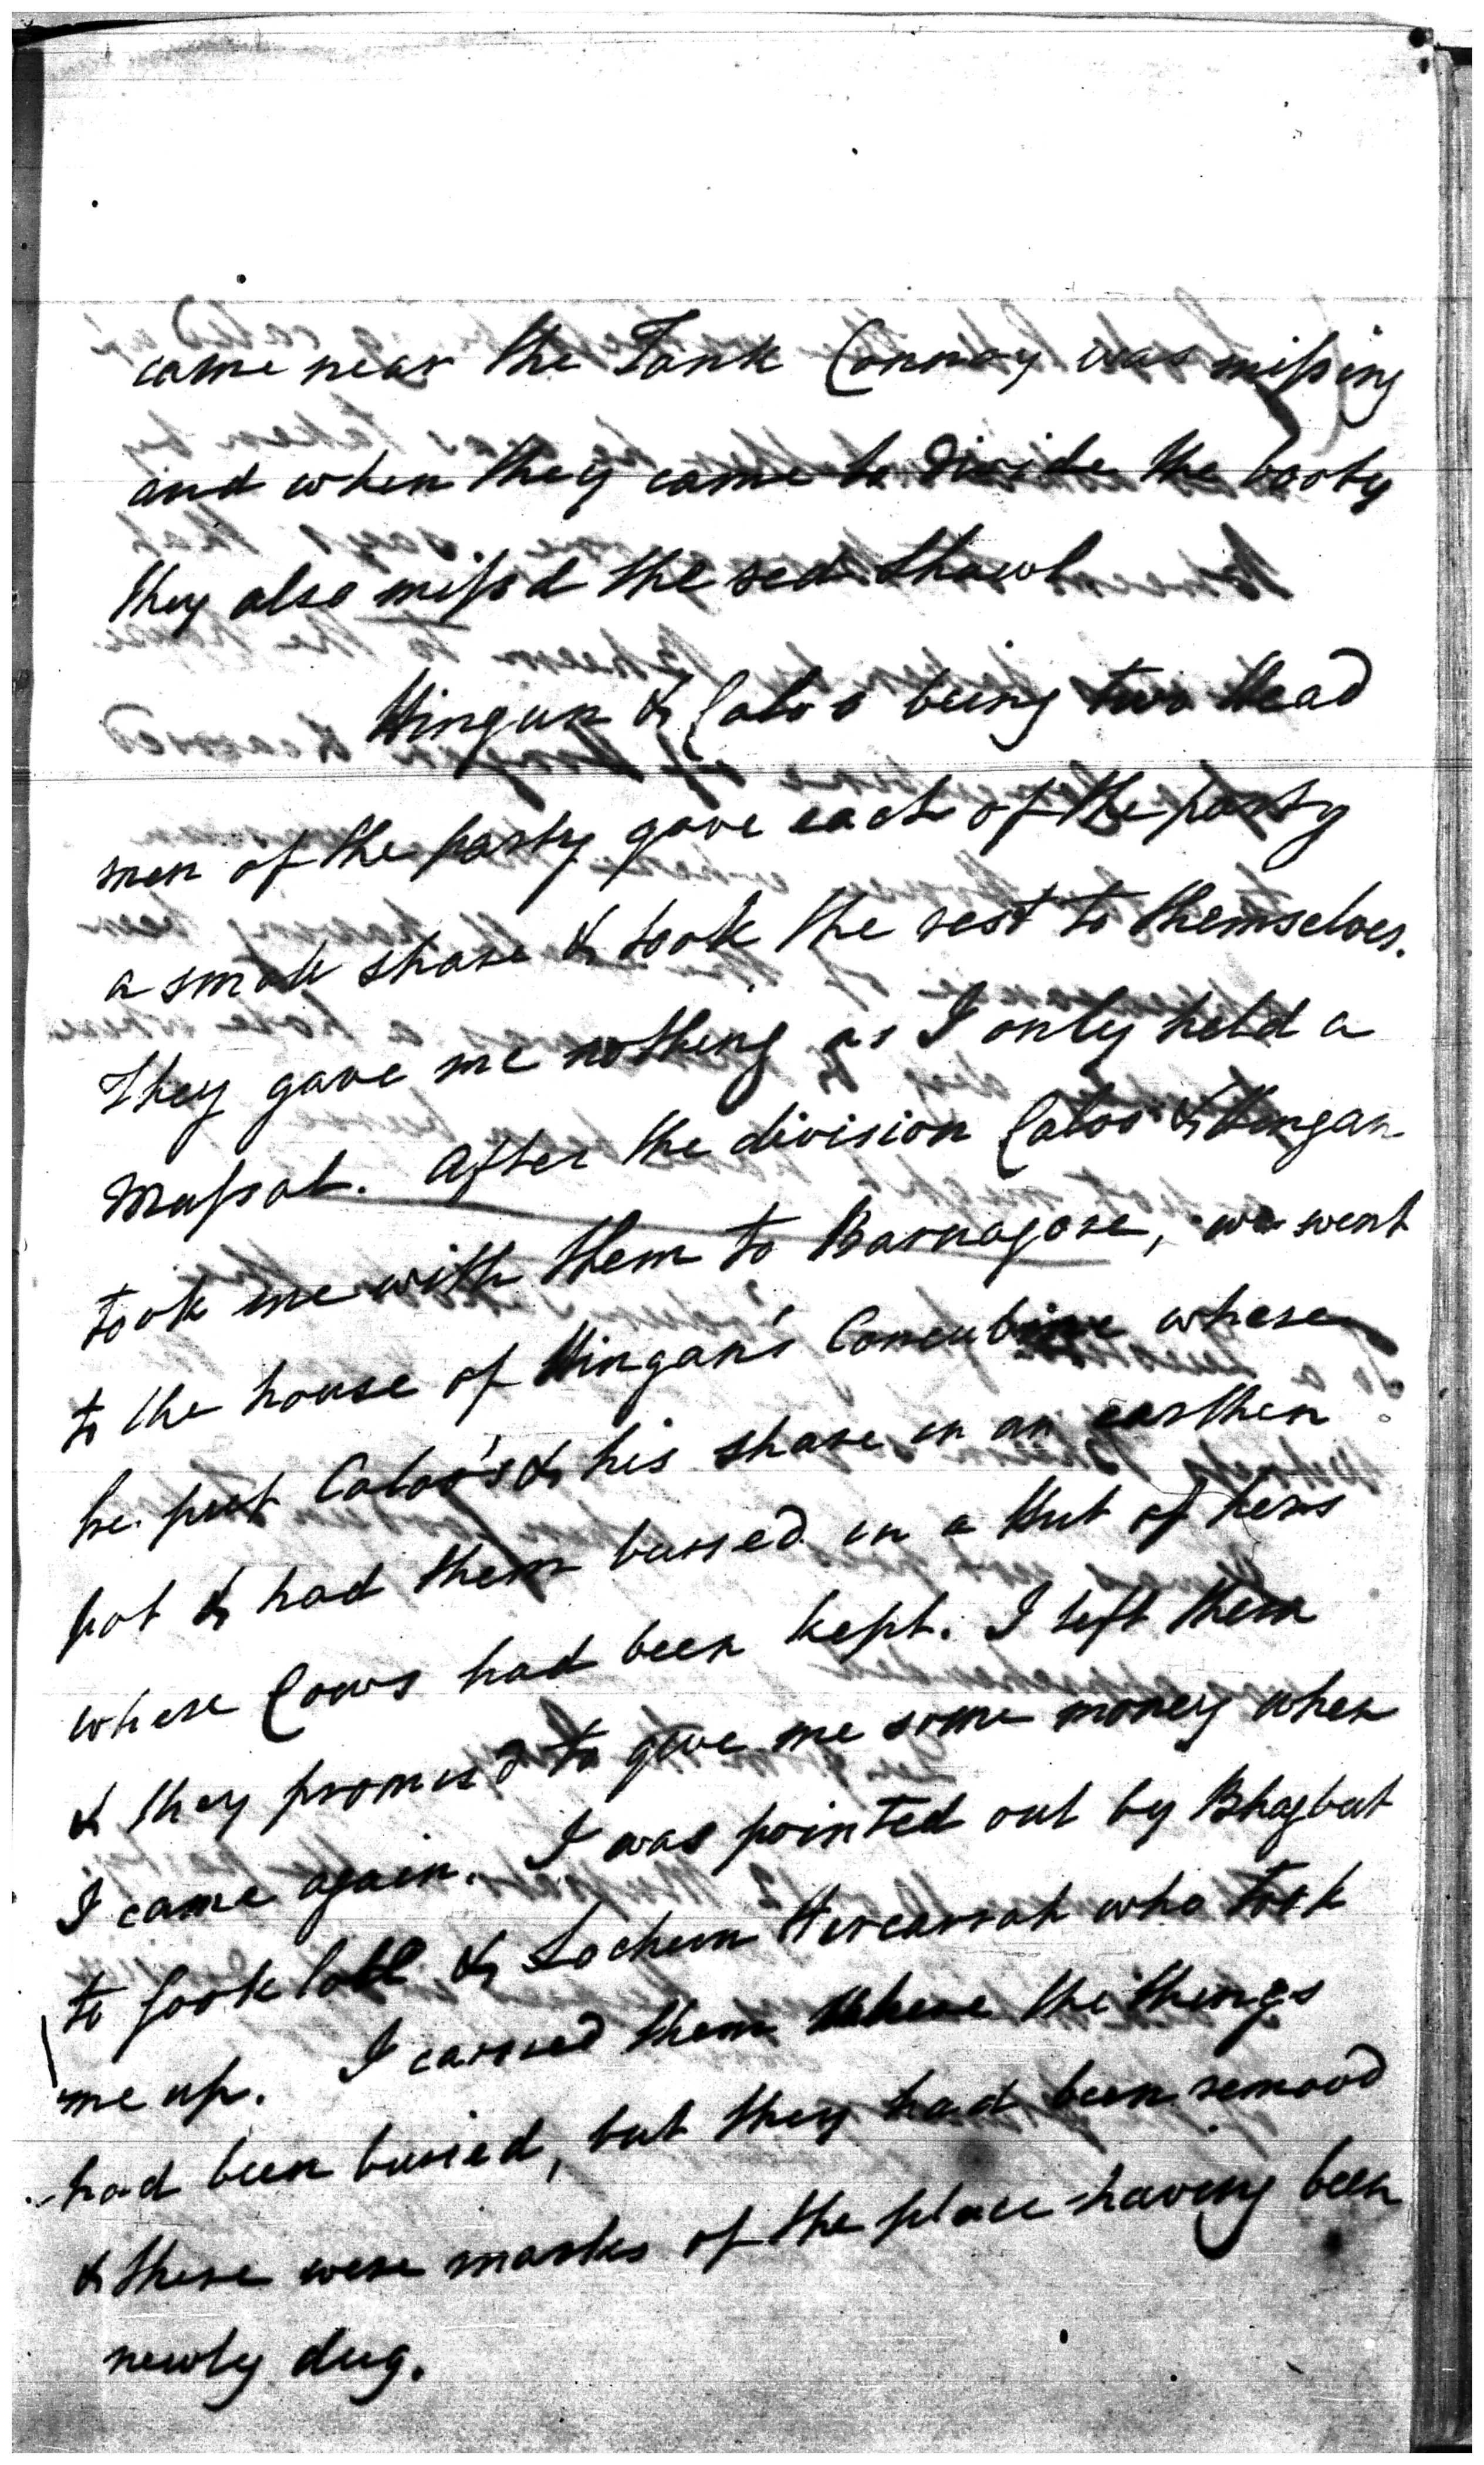 came near the Tank Connoy was missing
and when they came to divide the booty
they also miss'd the red Shawl
Hingun & Caloo being two Head
men of the party gave each of the party
a small share & took the rest to themselves.
They gave me nothing as I only held a
Massal. After the division Caloo & Hingan
took me with them to Barnagore, we went
to the house of Hingan's Concubine where
he put Caloo's & his share in an earthen
pot & had them buried in a Hut of hers
where Cows had been kept. I left them
& they promised to give me some money when
I came again. I was pointed out by Bhagbut
to Gook Lall & Lochun Hircarrah who took
me up. I carried them where the things
had been buried, but they had been remov'd
& there were marks of the place having been
newly dug.